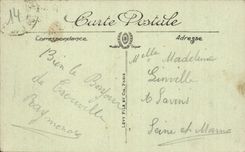 14
Carte Postale
Correspondance
Adresse
Bien le Bonjour
de Trouville
Raymond
LEVY FILS ET CIE, PARIS
Melle Madeleine
Linville
A Savins
Seine et Marne